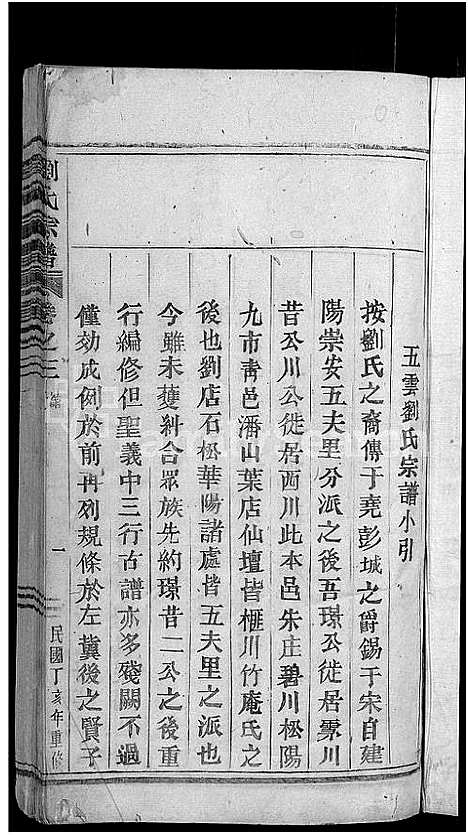 五雲劉氏宗譜小引
按劉氏之裔傳于堯彭城之爵錫于宋自建
陽崇安五夫里分派之後吾璟公徙居霥川
昔公川公徙居西川此本邑朱庄碧川松陽
九市青邑潘山葉店仙壇皆榧川竹庵氏之
後也劉店石松華陽諸處皆五夫里之派也
今雖未獲糾合眾族先約璟昔二公之後重
行編修但聖義中三行古譜亦多殘闕不過
僅効成例於前再列規條於左冀後之賢子
劉氏宗譜
卷之三
一
民國丁亥年重修